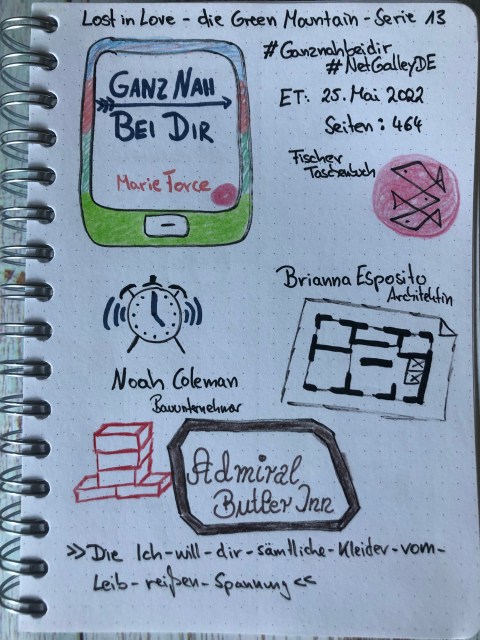 Lost in Love - die Green Mountain - Serie 13
#Ganznahbeidir
#NetGalleyDE
GANZ NAH
BEI DIR
Marie Force
ET: 25. Mai 2022
Seiten: 464
Fischer
Taschenbuch
Brianna Esposito
Architektin
Noah Coleman
Bauunternehmer
Admiral
Butler Inn
>> Die Ich-will-dir-sämtliche-Kleider-vom-
Leib-reißen-Spannung <<